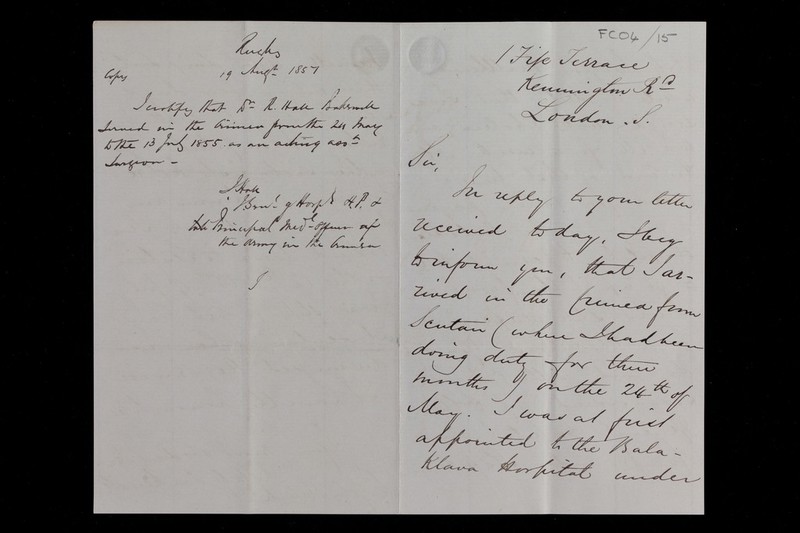 Copy
19 Augt. 1857
I certify that Dr. R. Hall Bakewell
served in the Crimea from the 24 May
to the 13 July 1855 as an acting asst.
Surgeon -
J Hall
Insr. Genl. of Hospls. H.P. &
late Principal Medl. Officer of
the Army in the Crimea
FC04/15
1 Fife Terrace
Kennington Rd.
London. S.
Sir,
In reply to your letter
received to day, I beg
to inform you, that I ar-
rived in the Crimea from
Scutari (where I had been
doing duty for three
months) on the 24th of
May. I was at first
appointed to the Bala-
klava Hospital under